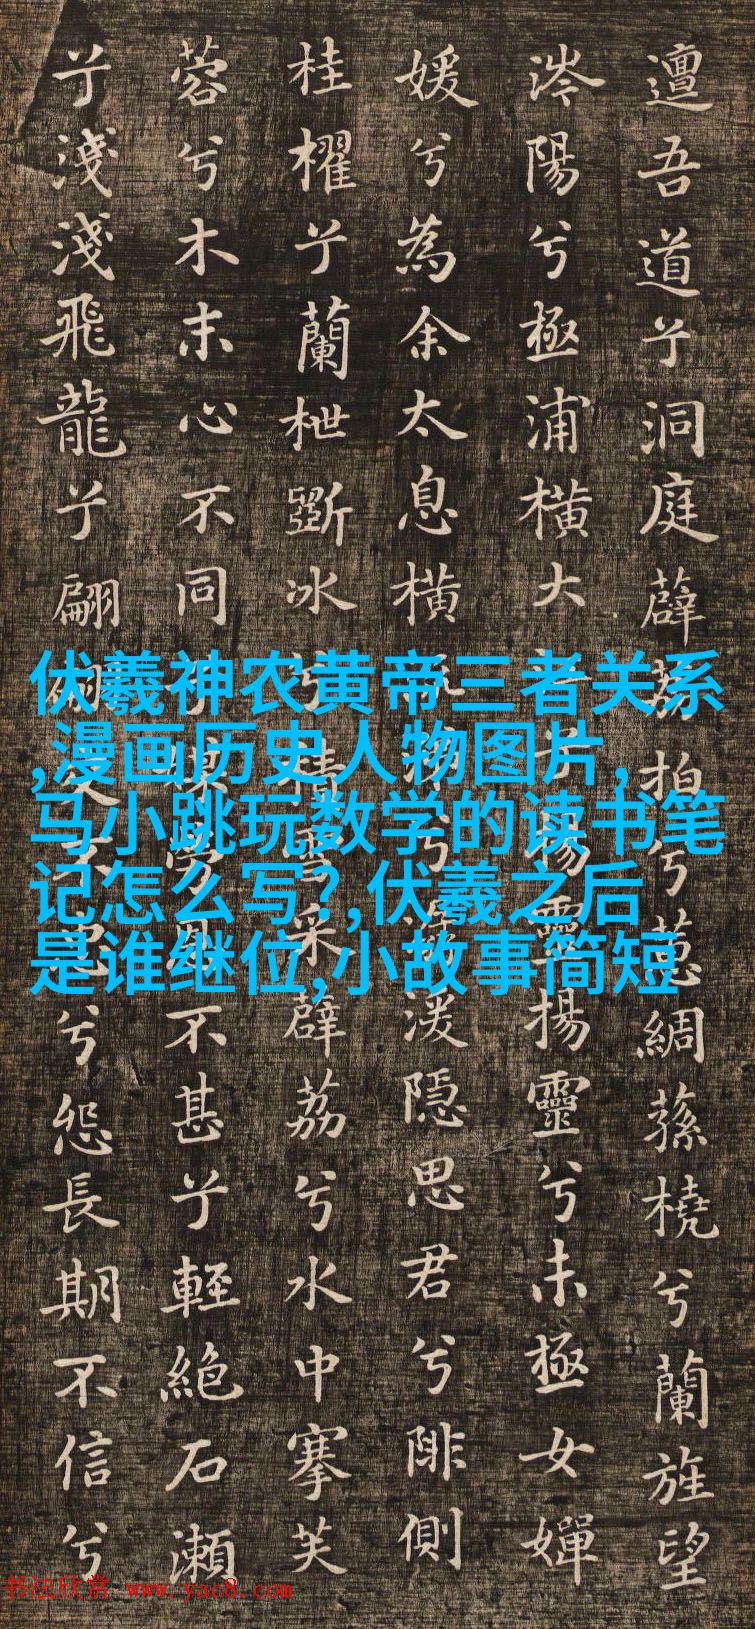 邅吾道兮洞庭薜荔拍兮蕙綢蓀橈兮蘭旌望
涔陽兮極浦橫大江兮揚靈揚靈兮未極女嬋
媛兮為余太息橫流涕兮潺湲隱思君兮陫側
桂櫂兮蘭枻斲冰兮積雪采薜荔兮水中搴芙
蓉兮木末心不同兮媒勞恩不甚兮輕絕石瀨
兮淺淺飛龍兮翩翩交不忠兮怨長期不信兮
伏羲神农黄帝三者关系
,漫画历史人物图片,
马小跳玩数学的读书笔
记怎么写?,伏羲之后
是谁继位,小故事简短
书法欣赏 www.yac8.com